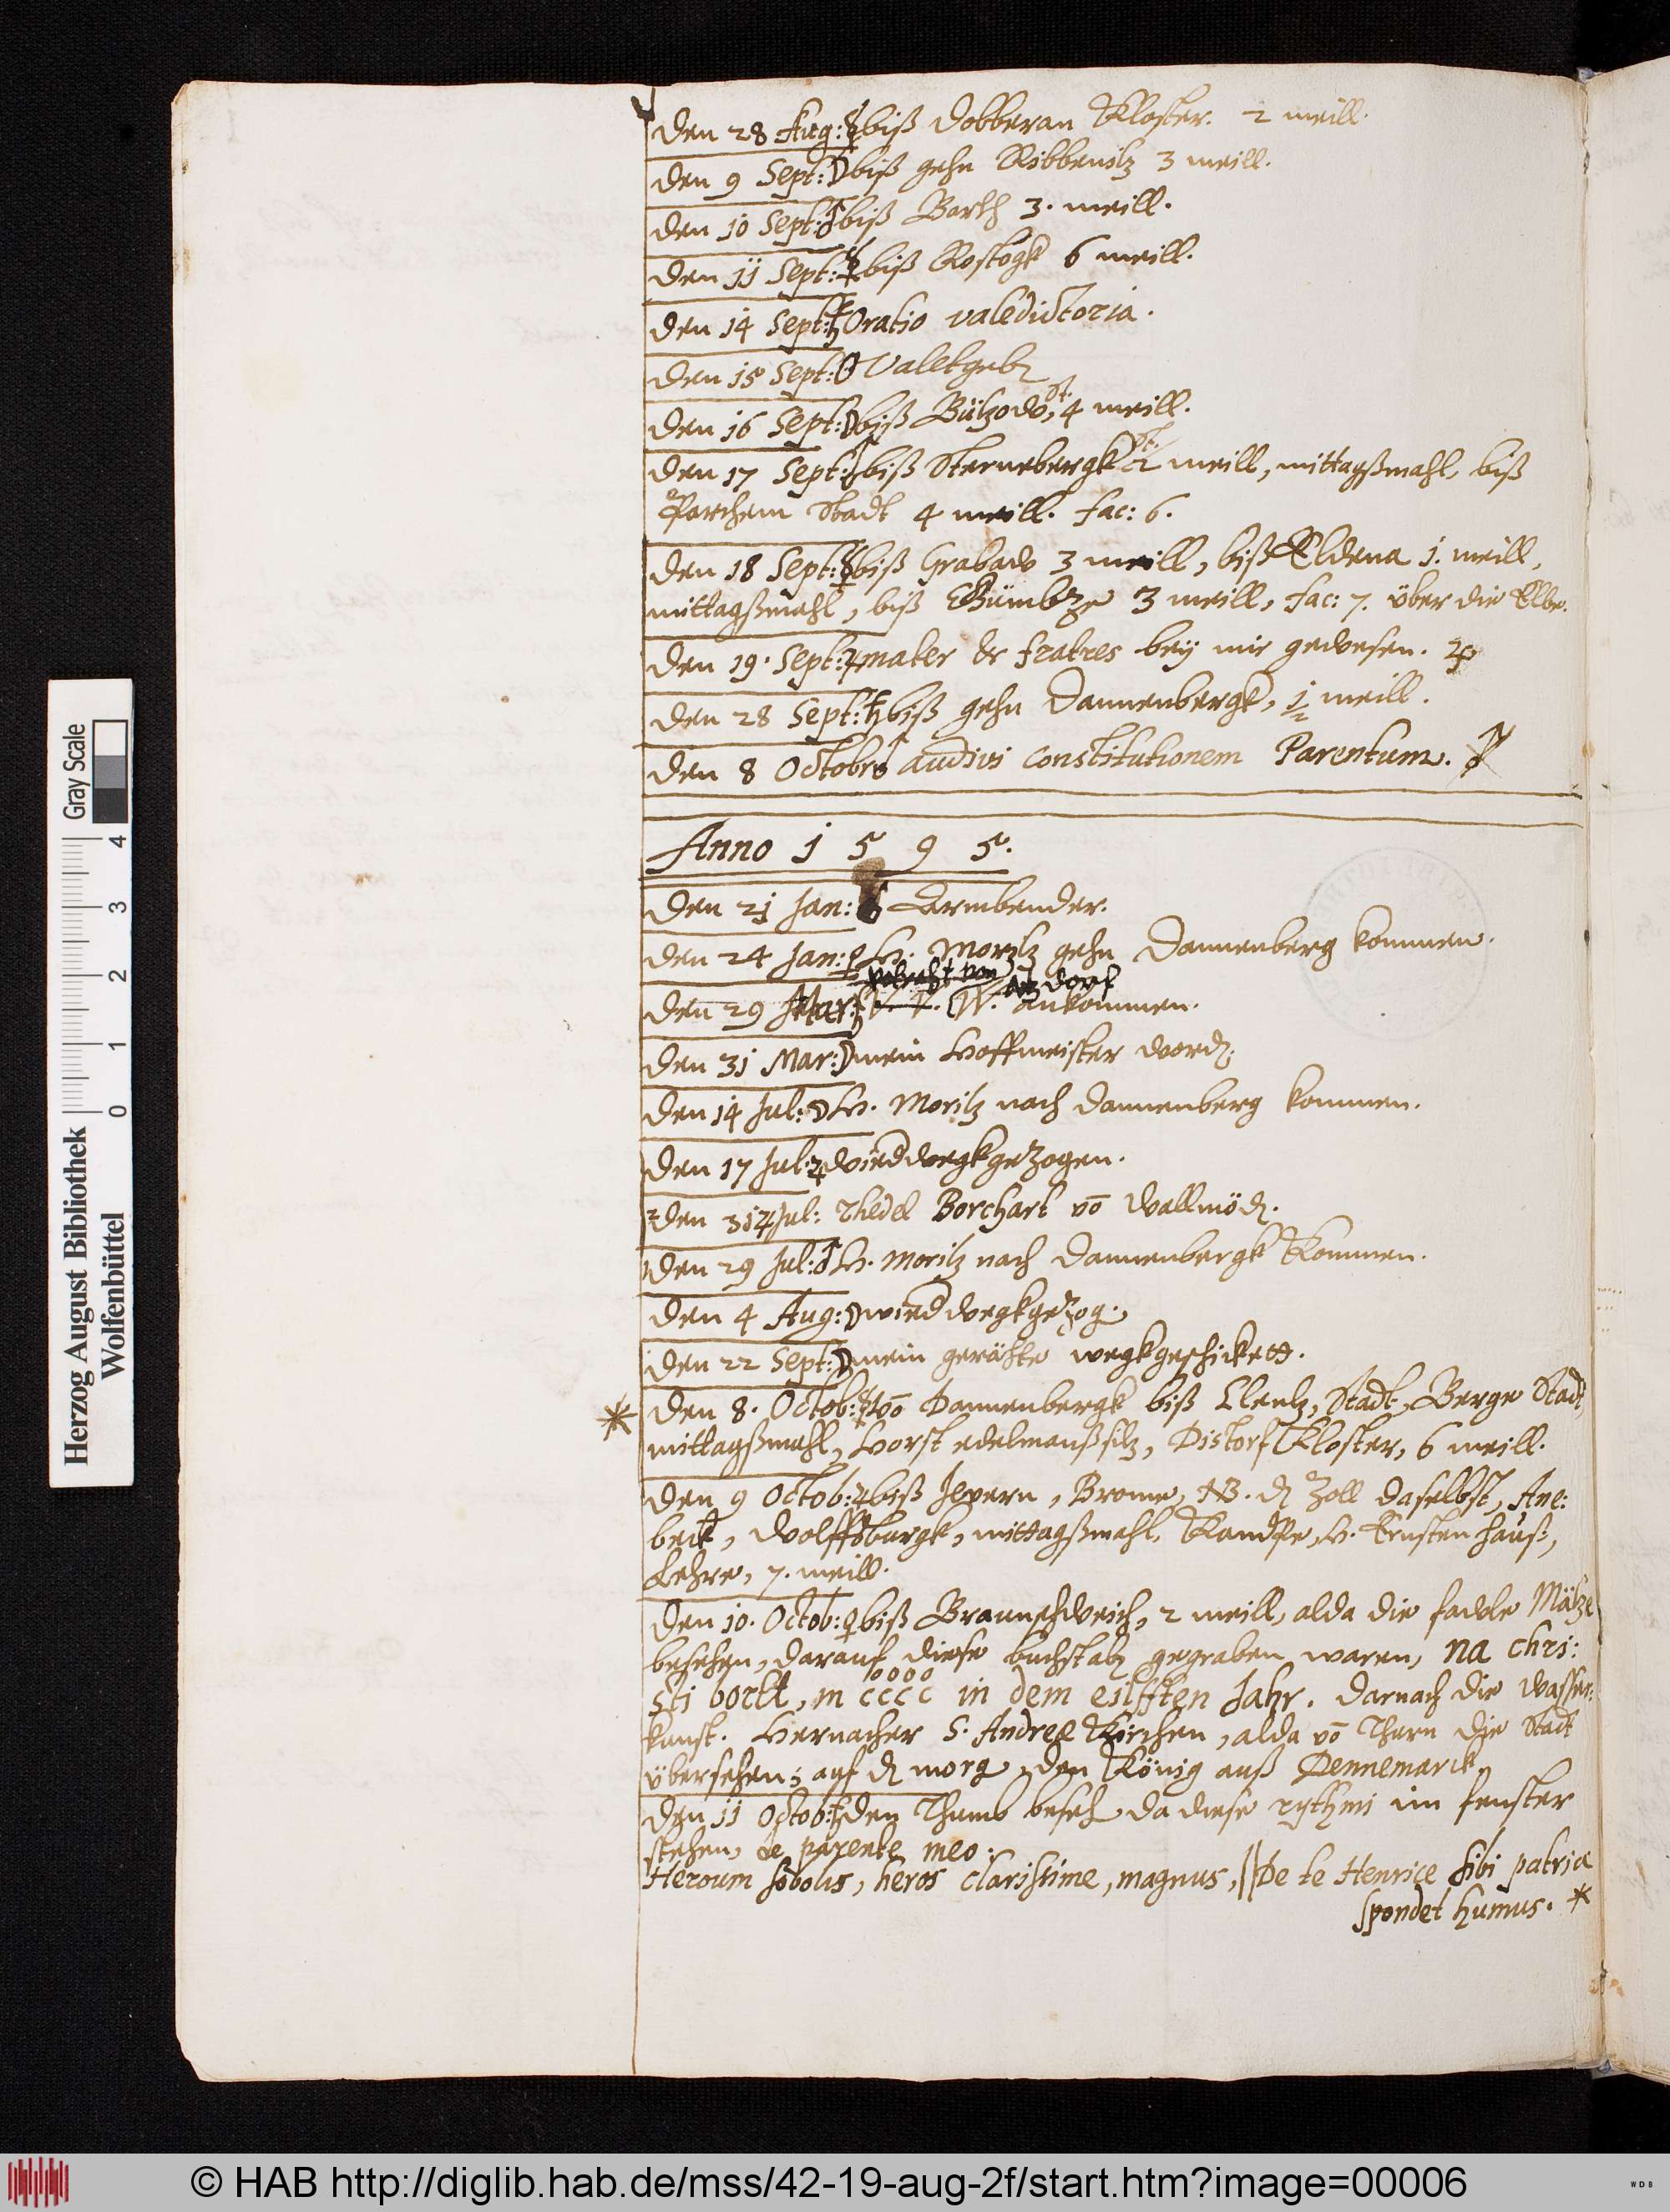 Den 28 Aug: ☿ biß Dobberan Kloster. 2 meill.
Den 9 Sept: ☽ biß gehn Ribbenitz 3 meill.
Den 10 Sept: ♂ biß Barth 3. meill.
Den 11 Sept: ☿ biß Rostogk 6 meill.
Den 14 Sept: ♄ Oratio valedictoria.
Den 15 Sept: ☉ Valetgeb
Den 16 Sept: ☽ biß Bützow, St. 4 meill.
Den 17 Sept: ♂ biß Sternebergk St. 2 meill, mittagßmahl, biß
Parchem Stadt 4 meill. fac: 6.
Den 18 Sept: ☿ biß Grabaw 3 meill, biß Eldena 1. meill,
mittagßmahl, biß 3 meill, fac: 7. über die Elbe.
Den 19. Sept: ♃ mater & fratres bey mir gewesen.
Den 28 Sept: ♄ biß gehn Dannenbergk, 1/2 meill.
Den 8 Octobr ♂ audivi constitutionem Parentum.
Anno 1 5 9 5.
Den 21 Jan: Armbender.
Den 24 Jan: ♀ H. Moritz gehn Dannenberg kommen.
dorf
Den 29 Mar: ♄ V. V. W. ankommen.
Den 31 Mar: ☽ mein Hoffmeister word.
Den 14 Jul: ☽ H. Moritz nach Dannenberg kommen.
Den 17 Jul: ♃ wied wegkgezogen.
2 Den 31 ♃ Jul: Thedel Borchart vō Wallmöd.
1 Den 29 Jul: ♂ H. Moritz nach Dannenbergk Kommen.
Den 4 Aug: ☽ wied wegkgezog.
Den 22 Sept: ☽ mein geräthe wegkgeschickett.
* Den 8. Octob: ☿ vō Dannenbergk biß Clentz, Stadt, Berge Stadt,
mittagßmahl, Horst edelmanßsitz, Distorf Kloster, 6 meill.
Den 9 Octob: ♃ biß Jevern, Brome, NB. d Zoll daselbst, Ane:
beck, Wolffsburgk, mittagßmahl, H. Ernsten hauß,
Lehre, 7. meill.
Den 10. Octob: ♀ biß Braunschweich, 2 meill, alda die fawle Mätze
besehen, darauf diese buchstab gegraben waren, na Chri:
sti bortt, m cccc in dem eilfften Jahr. Darnach die Wasser:
kunst. Hernacher S. Andreæ Kirchen, alda vō Thurn die Stadt
übersehen; auf d morg den König auß Dennemarck,
Den 11 Octob: ♄ den Thumb beseh da diese rythmi im fenster
stehen, de parente meo:
Heroum sobolis, heros clarissime, magnus, || De te Henrice sibi patria
spondet humus. *
Herzog August Bibliothek
Wolfenbüttel
Gray Scale
0 1 2 3 4
© HAB http://diglib.hab.de/mss/42-19-aug-2f/start.htm?image=00006
WDB